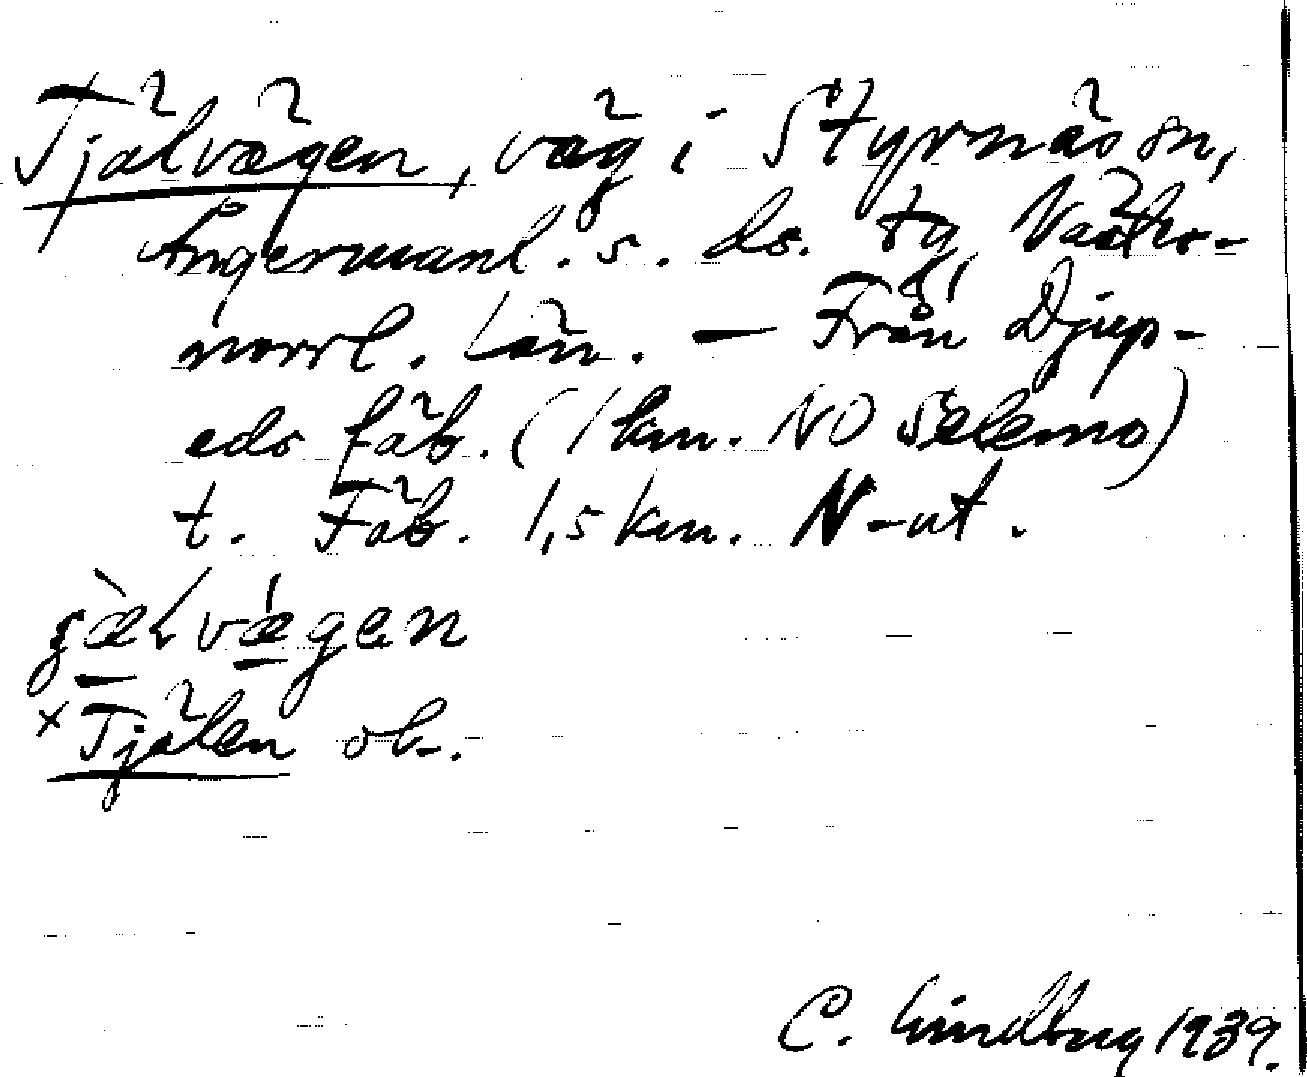 Tjälvägen, väg i Styrnäs sn,
Ångermanl. s. ds. tg, Väster-
norrl. län. — Från Djup-
eds fäb. (1 km. NO Selsmo)
t. Fäb. 1,5 km. N-ut.
vægen
×Tjälen ob-.
C. Lindberg 1939.